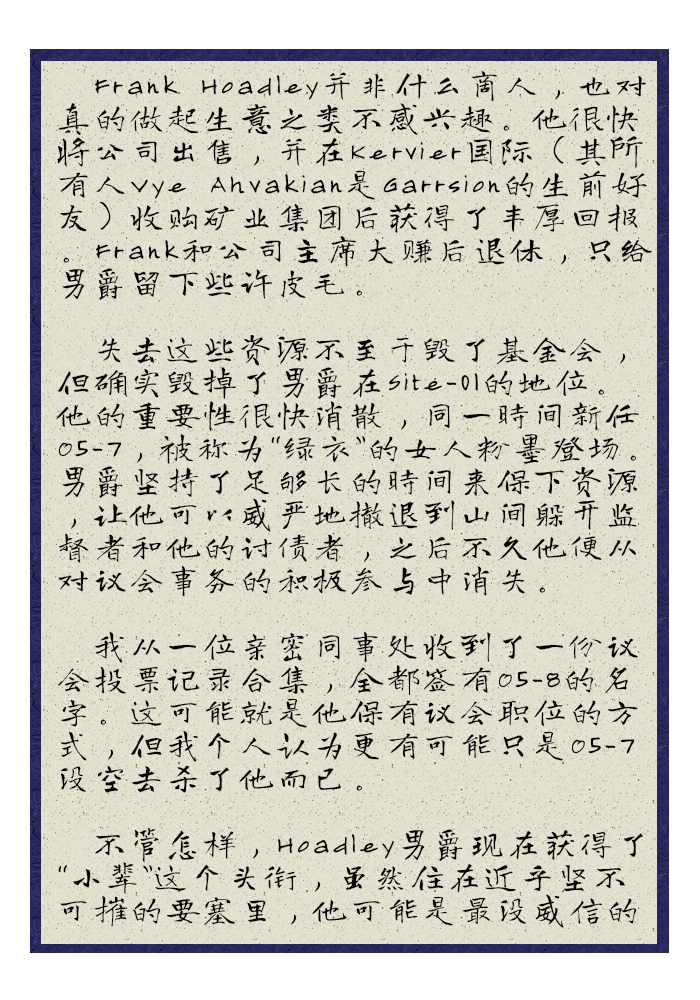 Frank Hoadley并非什么商人，也对
真的做起生意之类不感兴趣。他很快
将公司出售，并在Kervier国际（其所
有人Vye Ahvakian是Garrsion的生前好
友）收购矿业集团后获得了丰厚回报
。Frank和公司主席大赚后退休，只给
男爵留下些许皮毛。
失去这些资源不至于毁了基金会，
但确实毁掉了男爵在Site-01的地位。
他的重要性很快消散，同一时间新任
O5-7，被称为“绿衣”的女人粉墨登场。
男爵坚持了足够长的时间来保下资源
，让他可以威严地撤退到山间躲开监
督者和他的讨债者，之后不久他便从
对议会事务的积极参与中消失。
我从一位亲密同事处收到了一份议
会投票记录合集，全都签有O5-8的名
字。这可能就是他保有议会职位的方
式，但我个人认为更有可能只是O5-7
没空去杀了他而已。
不管怎样，Hoadley男爵现在获得了
“小辈”这个头衔，虽然住在近乎坚不
可摧的要塞里，他可能是最没威信的